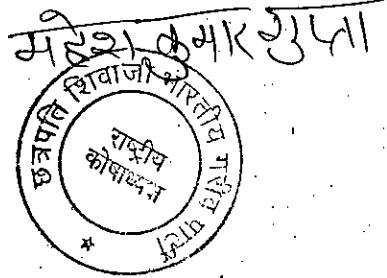 महेश कुमार गुप्ता
छत्रपति शिवाजी भारतीय गरीब पार्टी
राष्ट्रीय
कोषाध्यक्ष